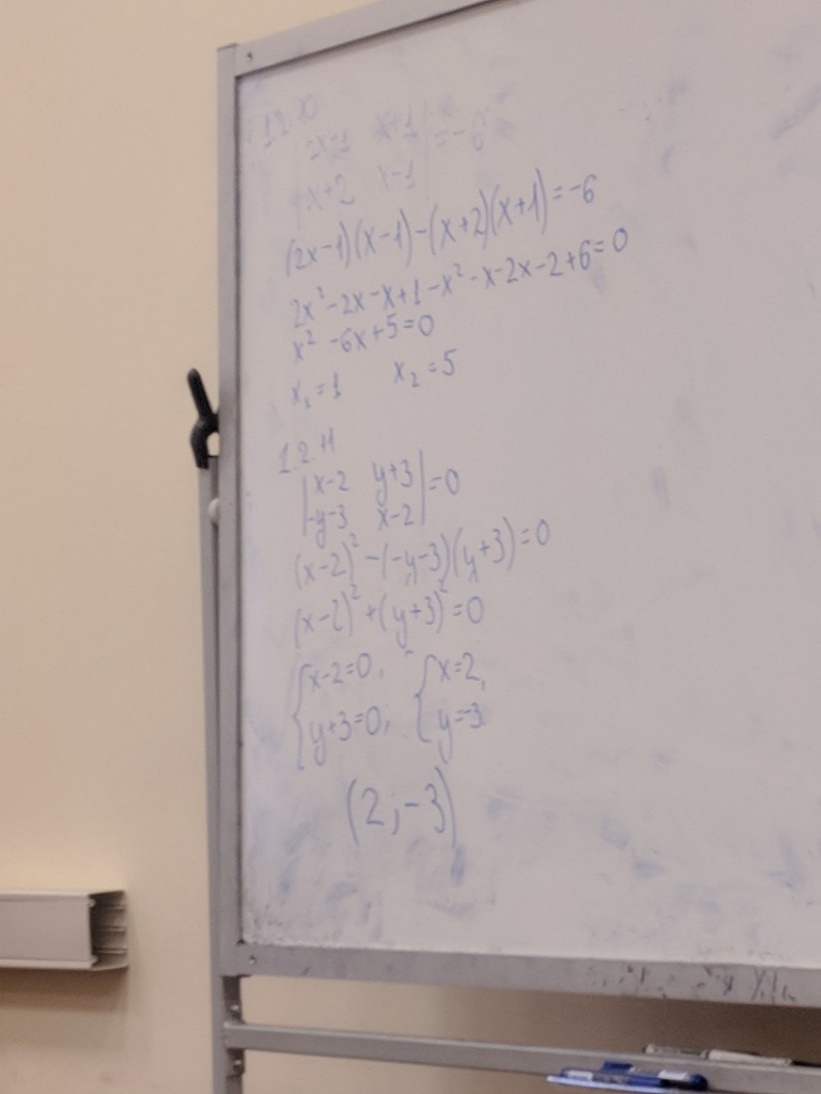 1.2.10
|2x-1 x+1| = -6
|x+2 x-1|
(2x-1)(x-1)-(x+2)(x+1)=-6
2x²-2x-x+1-x²-x-2x-2+6=0
x²-6x+5=0
x₁=1 x₂=5
1.2.11
|x-2 y+3|=0
|-y-3 x-2|
(x-2)²-(-y-3)(y+3)=0
(x-2)²+(y+3)²=0
{x-2=0, {x=2,
{y+3=0; {y=-3
(2;-3)